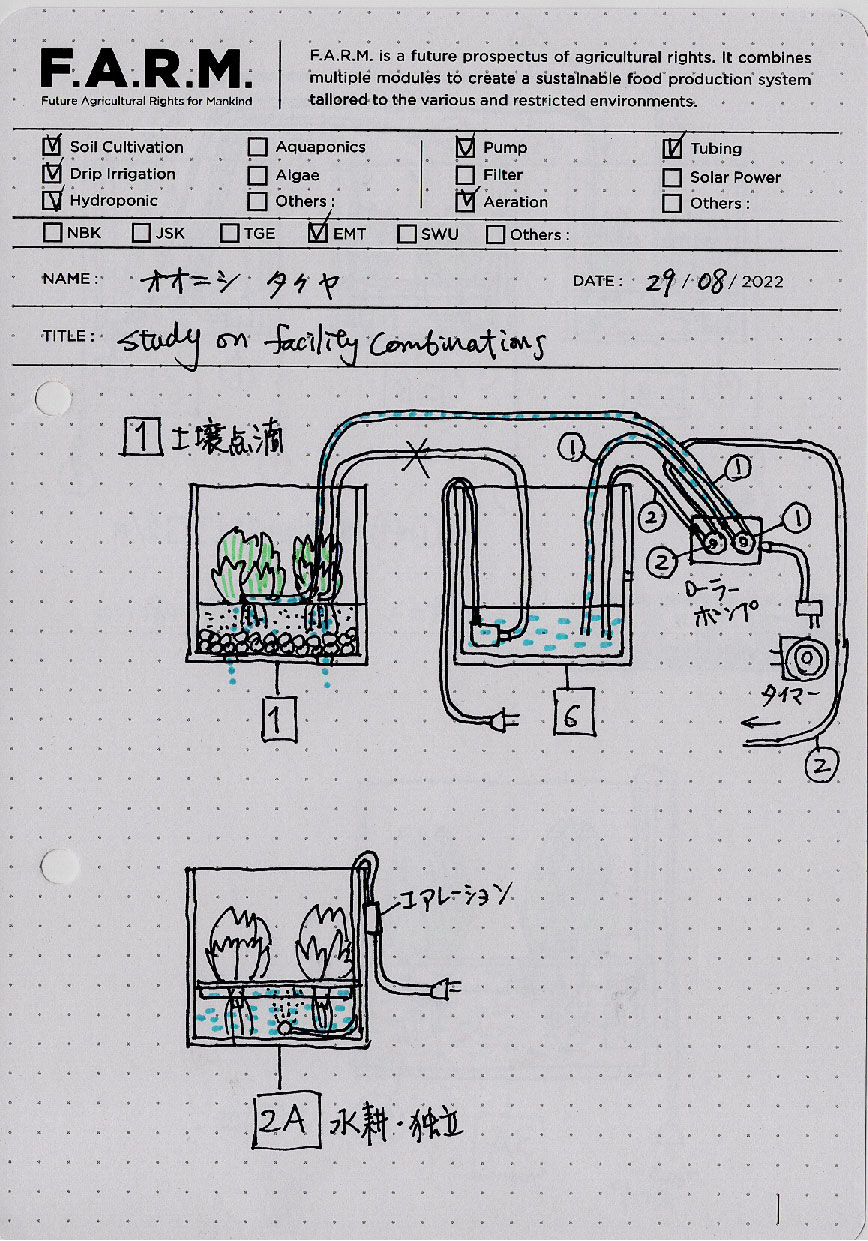 F.A.R.M.
Future Agricultural Rights for Mankind
F.A.R.M. is a future prospectus of agricultural rights. It combines
multiple modules to create a sustainable food production system
tailored to the various and restricted environments.
Soil Cultivation
Drip Irrigation
Hydroponic
Aquaponics
Algae
Others :
Pump
Filter
Aeration
Tubing
Solar Power
Others :
NBK JSK TGE EMT SWU Others :
NAME : オオニシ タケヤ
DATE : 29 / 08 / 2022
TITLE : Study on facility combinations
1 土壌点滴
①
①
②
①
②
ローラー
ポンプ
タイマー
1
6
②
エアレーション
2A 水耕・独立
1